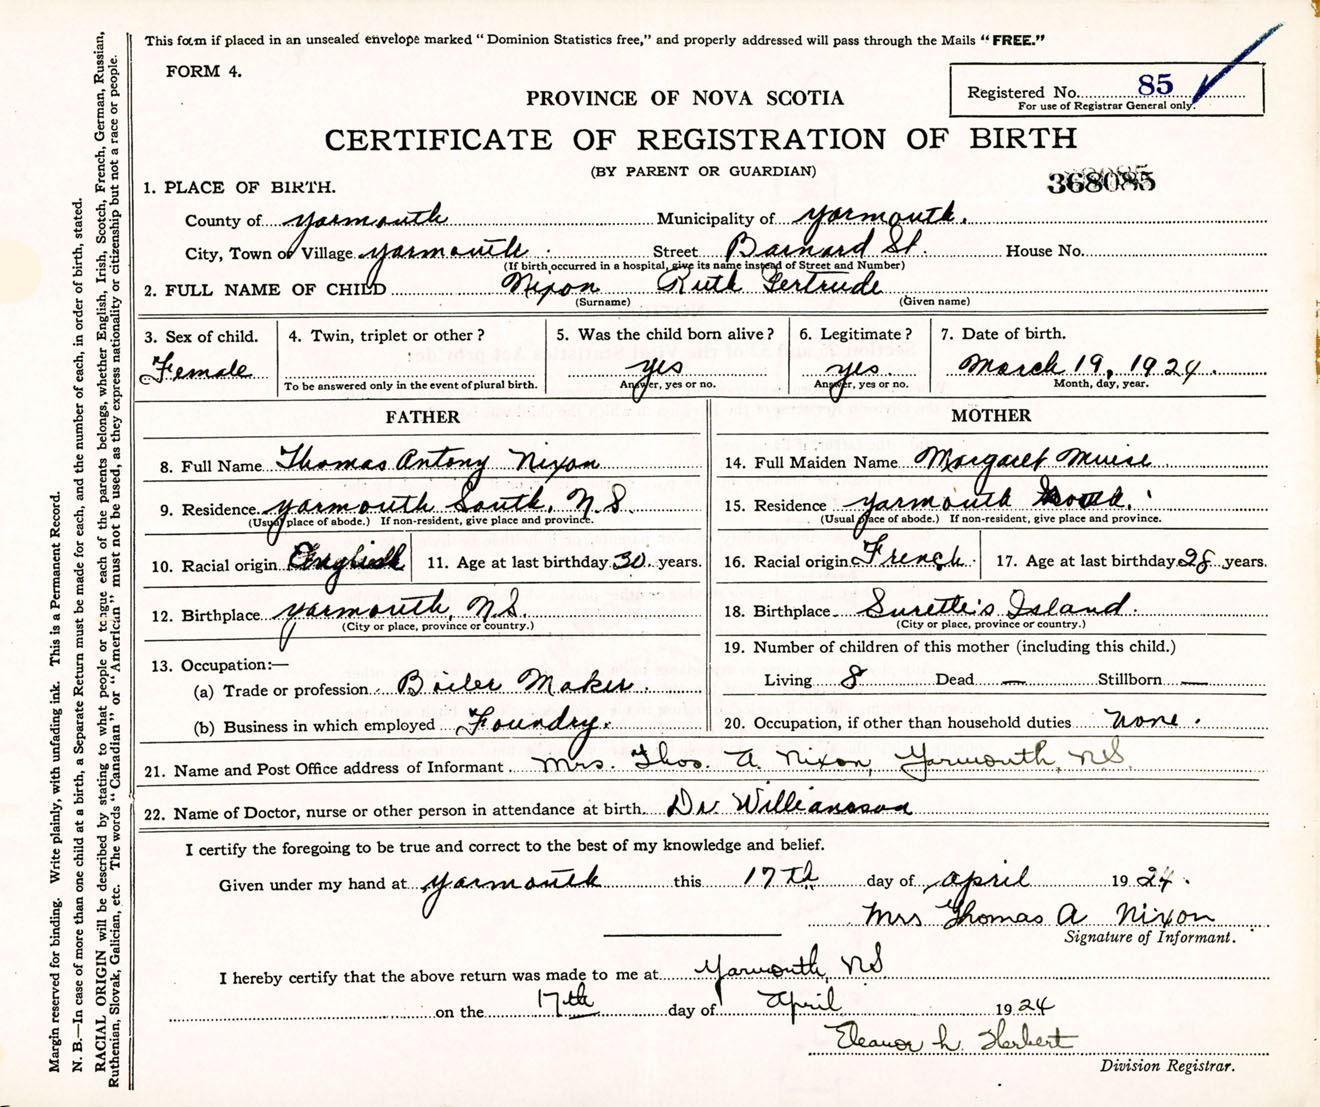 This form if placed in an unsealed envelope marked "Dominion Statistics free," and properly addressed will pass through the Mails "FREE."
FORM 4.
Registered No. 85
For use of Registrar General only.
PROVINCE OF NOVA SCOTIA
CERTIFICATE OF REGISTRATION OF BIRTH
(BY PARENT OR GUARDIAN)
368085
1. PLACE OF BIRTH.
County of Yarmouth Municipality of Yarmouth.
City, Town or Village Yarmouth Street Barnard St. House No.
(If birth occurred in a hospital, give its name instead of Street and Number)
2. FULL NAME OF CHILD Nixon Ruth Gertrude
(Surname) (Given name)
3. Sex of child. 4. Twin, triplet or other? 5. Was the child born alive? 6. Legitimate? 7. Date of birth.
Female yes yes March 19, 1924.
To be answered only in the event of plural birth. Answer, yes or no. Answer, yes or no. Month, day, year.
FATHER MOTHER
8. Full Name Thomas Antony Nixon 14. Full Maiden Name Margaret Muise
9. Residence Yarmouth South, N.S. 15. Residence Yarmouth South.
(Usual place of abode.) If non-resident, give place and province. (Usual place of abode.) If non-resident, give place and province.
10. Racial origin English 11. Age at last birthday 30 years. 16. Racial origin French 17. Age at last birthday 28 years.
12. Birthplace Yarmouth, N.S. 18. Birthplace Surette's Island.
(City or place, province or country.) (City or place, province or country.)
19. Number of children of this mother (including this child.)
13. Occupation:—
(a) Trade or profession Boiler Maker. Living 8 Dead — Stillborn —
(b) Business in which employed Foundry. 20. Occupation, if other than household duties None.
21. Name and Post Office address of Informant Mrs. Thos. A. Nixon, Yarmouth, N.S.
22. Name of Doctor, nurse or other person in attendance at birth. Dr. Williamson
I certify the foregoing to be true and correct to the best of my knowledge and belief.
Given under my hand at Yarmouth this 17th day of April 1924.
Mrs Thomas A Nixon
Signature of Informant.
I hereby certify that the above return was made to me at Yarmouth, NS
on the 17th day of April 1924
Eleanor L. Herbert
Division Registrar.
Margin reserved for binding. Write plainly, with unfading ink. This is a Permanent Record.
N. B.—In case of more than one child at a birth, a Separate Return must be made for each, and the number of each, in order of birth, stated.
RACIAL ORIGIN will be described by stating to what people or tongue each of the parents belongs, whether English, Irish, Scotch, French, German, Russian,
Ruthenian, Slovak, Galician, etc. The words "Canadian" or "American" must not be used, as they express nationality or citizenship but not a race or people.